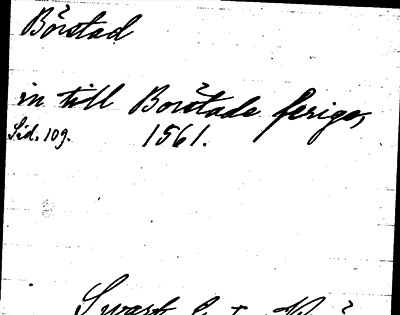 Börstad
in till Borstade feriger
Sid. 109. 1561.